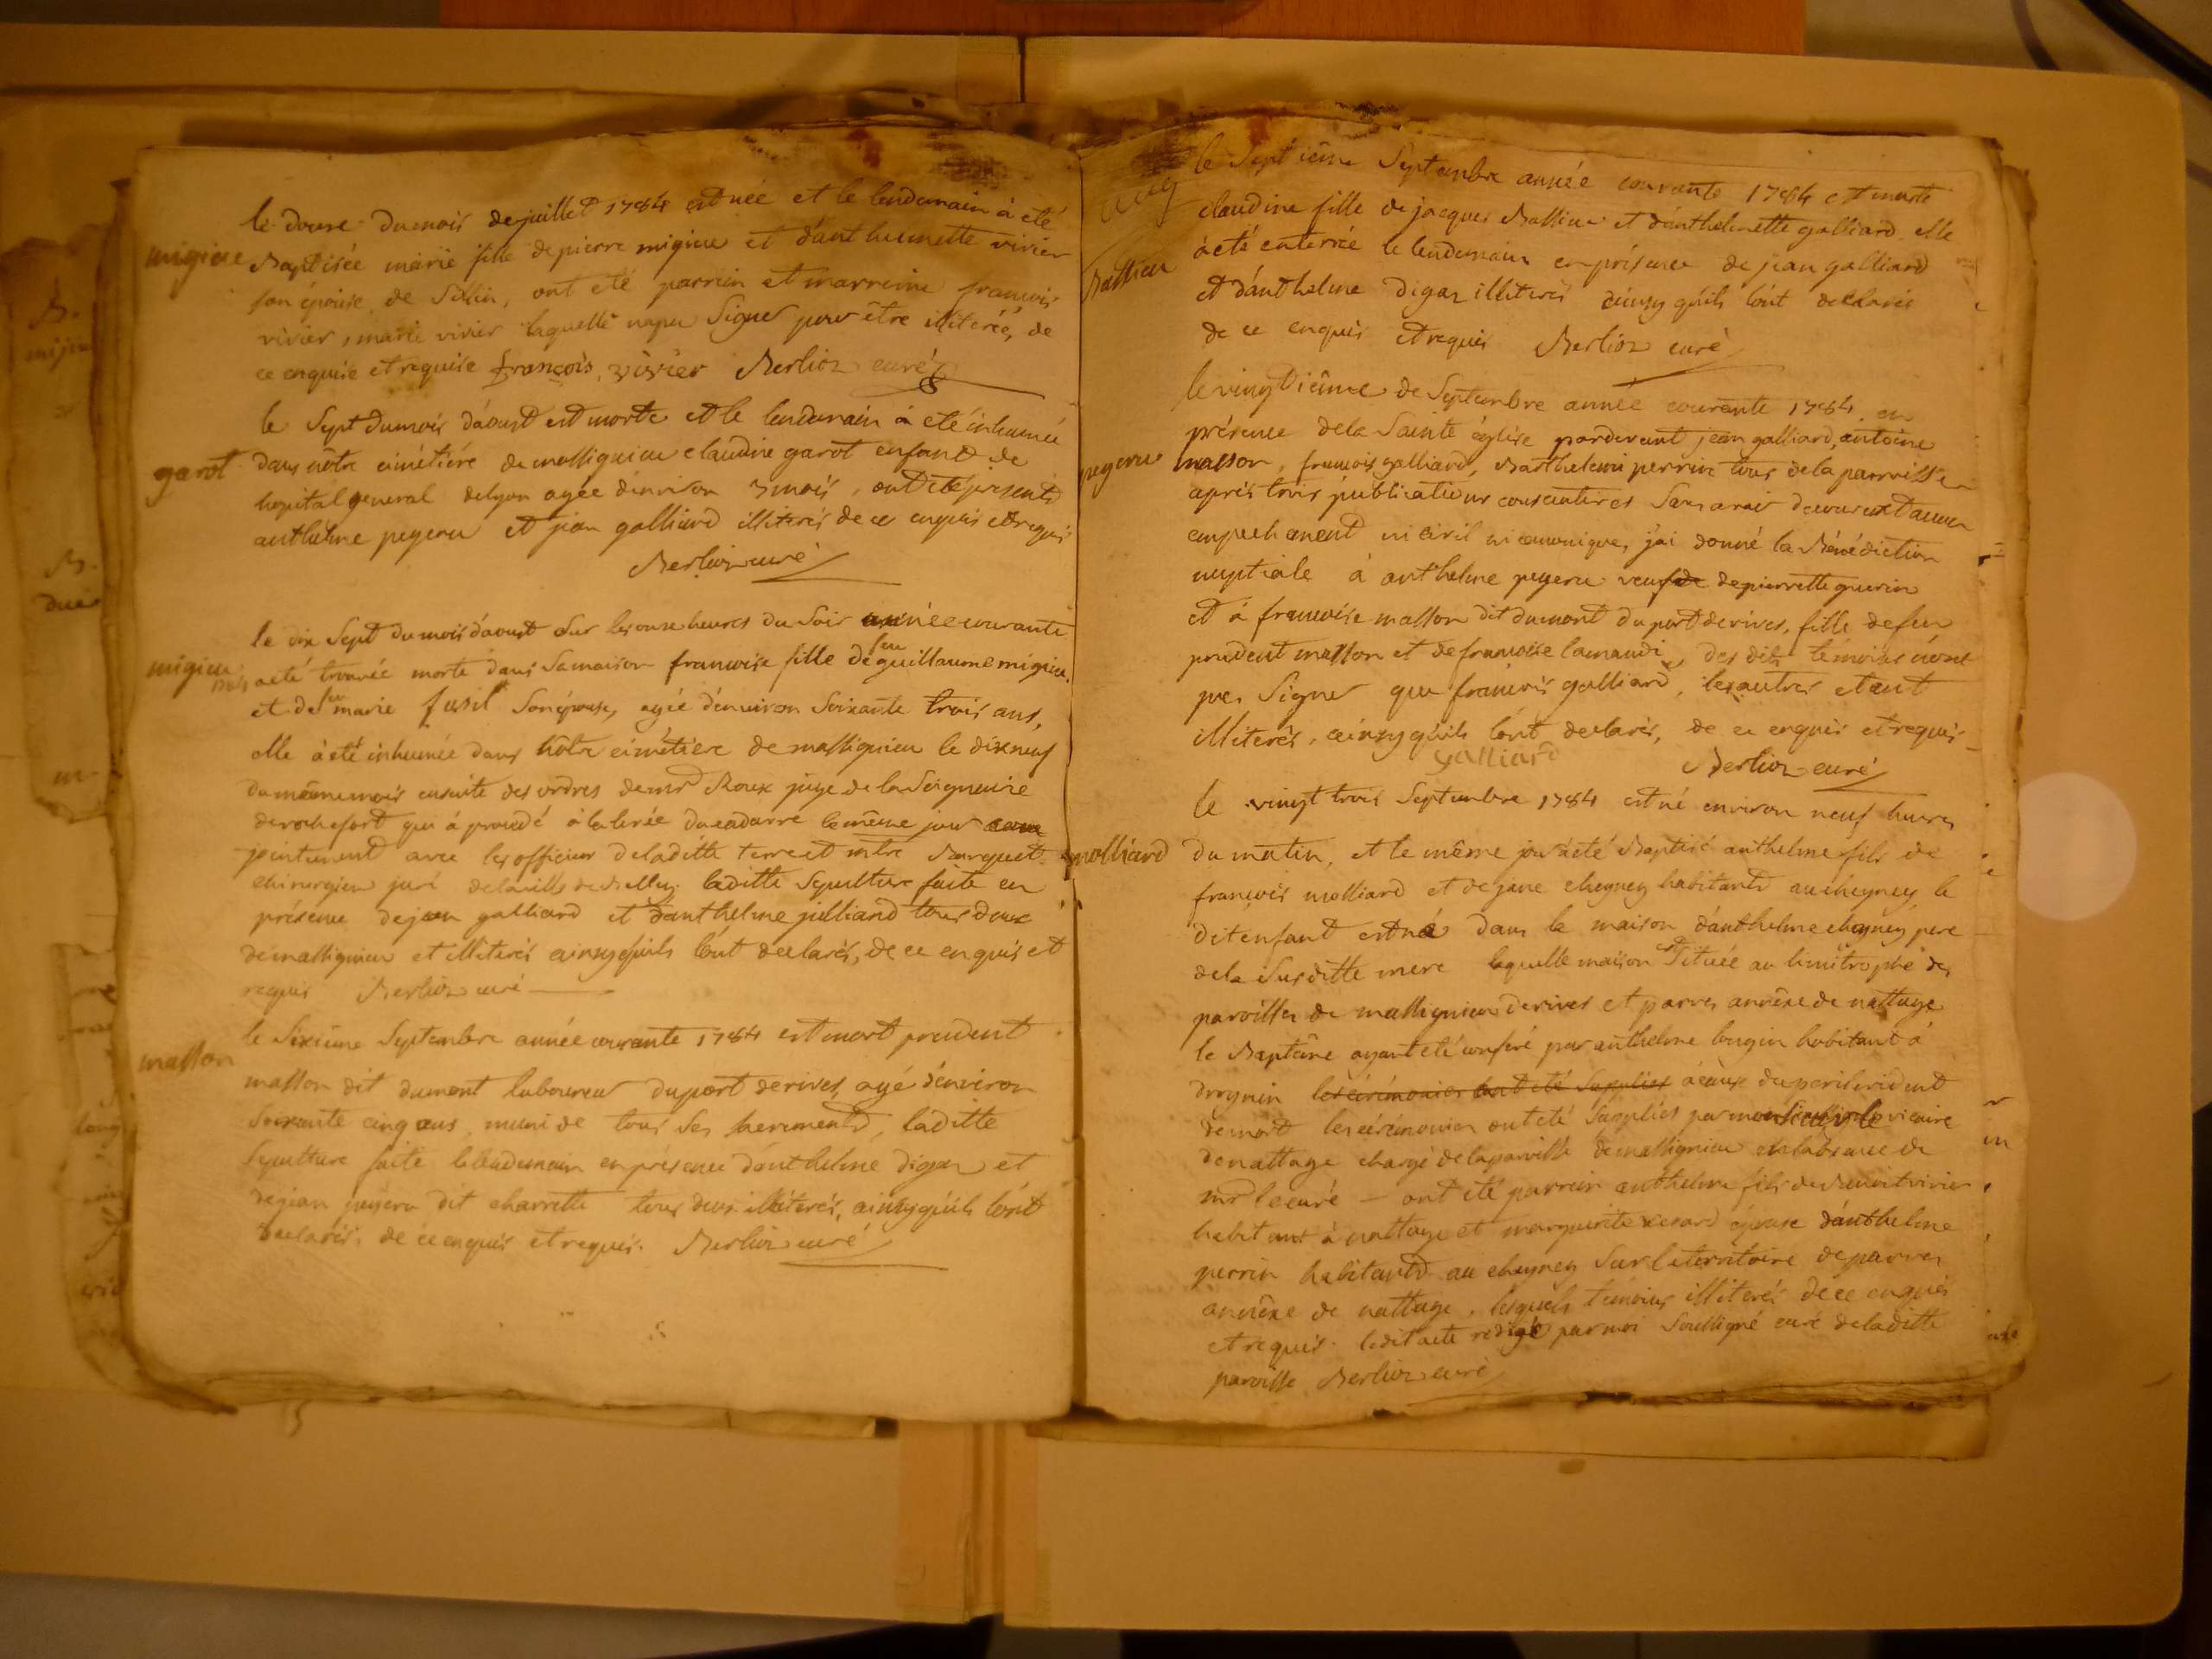 le douze du mois de juillet 1784 est née et le lendemain à eté
migieu Baptisée marie fille de pierre migieu et d'anthelmette vivier
son épouse de Sillin, ont eté parrein et marreine françois
vivier, marie vivier laquelle n'a pu signer pour être illiterée, de
ce enquise et requise françois vivier Berlioz curé
le Sept du mois d'aoust est morte et le lendemain à eté inhumée
garot dans nôtre cimétiére de massignieu claudine garot enfant de
hopital general de lyon agée d'environ 3 mois, ont eté présents
anthelme pegeru et jean galliard illiterés de ce enquis et requis
Berlioz curé
le dix Sept du mois d'aoust sur les onze heures du Soir année courante
migieu 1784 a eté trouvée morte dans Sa maison francoise fille de feu guillaume migieu
et de feu marie fusil Son épouse, agée d'environ Soixante trois ans,
elle à eté inhumée dans nôtre cimétiere de massignieu le dix neuf
du même mois ensuite des ordres de mr Roux juge de la Seigneurie
de rochefort qui à procedé à la levée du cadavre le même jour
jointement avec les officiers de la ditte terre et mtre Burquet
chirurgien juré de la ville de Belley. laditte Sepulture faite en
présence de jean galliard et d'anthelme julliard tous deux
de massignieu et illiterés ainsy qu'ils l'ont declarés, de ce enquis et
requis Berlioz curé
le Sixieme Septembre année courante 1784 est mort prudent
masson
masson dit dumont laboureur du port de rives, agé d'environ
Soixante cinq ans, muni de tous Ses Sacrements, laditte
Sepulture faite le lendemain en présence d'anthelme digoz et
de jean pegeru dit charrette tous deux illiterés, ainsy qu'ils l'ont
declarés, de ce enquis et requis. Berlioz curé
le Septieme Septembre année courante 1784 est morte
claudine fille de jacques Balliau et d'anthelmette galliard elle
à eté enterrée le lendemain en présence de jean galliard
et d'anthelme digoz illiterés ainsy qu'ils l'ont declarés
de ce enquis et requis Berlioz curé
le vingtieme de Septembre année courante 1784 en
présence de la Sainte église pardevant jean galliard, antoine
pegeru masson, francois galliard, Barthelemi perrin tous de la parroisse
aprés trois publications consecutives Sans avoir decouvert aucun
empechement ni civil ni canonique, j'ai donné la Bénédiction
nuptiale à anthelme pegeru veuf de pierrette guerin
et à francoise masson dit dumont du port de rives, fille de feu
prudent masson et de francoise lamandi, des dits témoins n'ont
peu Signer que francois galliard, les autres etant
illiterés, ainsy qu'ils l'ont declarés, de ce enquis et requis
galliard Berlioz curé
le vingt trois Septembre 1784 est né environ neuf heures
molliard du matin, et le même jour à eté Baptisé anthelme fils de
francois molliard et de jane cheyney habitants au cheyney, le
dit enfant est né dans la maison d'anthelme cheyney pere
de la Susditte mere laquelle maison est Située au limitrophe des
paroisses de massignieu de rives et parves annêxe de nattage
le Baptême ayant eté conferé par anthelme longin habitant à
les cérémonies ont eté Supplées à cause du peril evident
de mort les cérémonies ont eté Supplées par vicaire
de nattage chargé de la paroisse de massignieu en l'absence de
mr le curé — ont eté parrein anthelme fils de Benoit vivier
habitant à nattage et marguerite épouse d'anthelme
perrin habitants au cheyney Sur le territoire de parves
annêxe de nattage, lesquels témoins illiterés de ce enquis
et requis. ledit acte rédigé par moi Soussigné curé de laditte
paroisse Berlioz curé